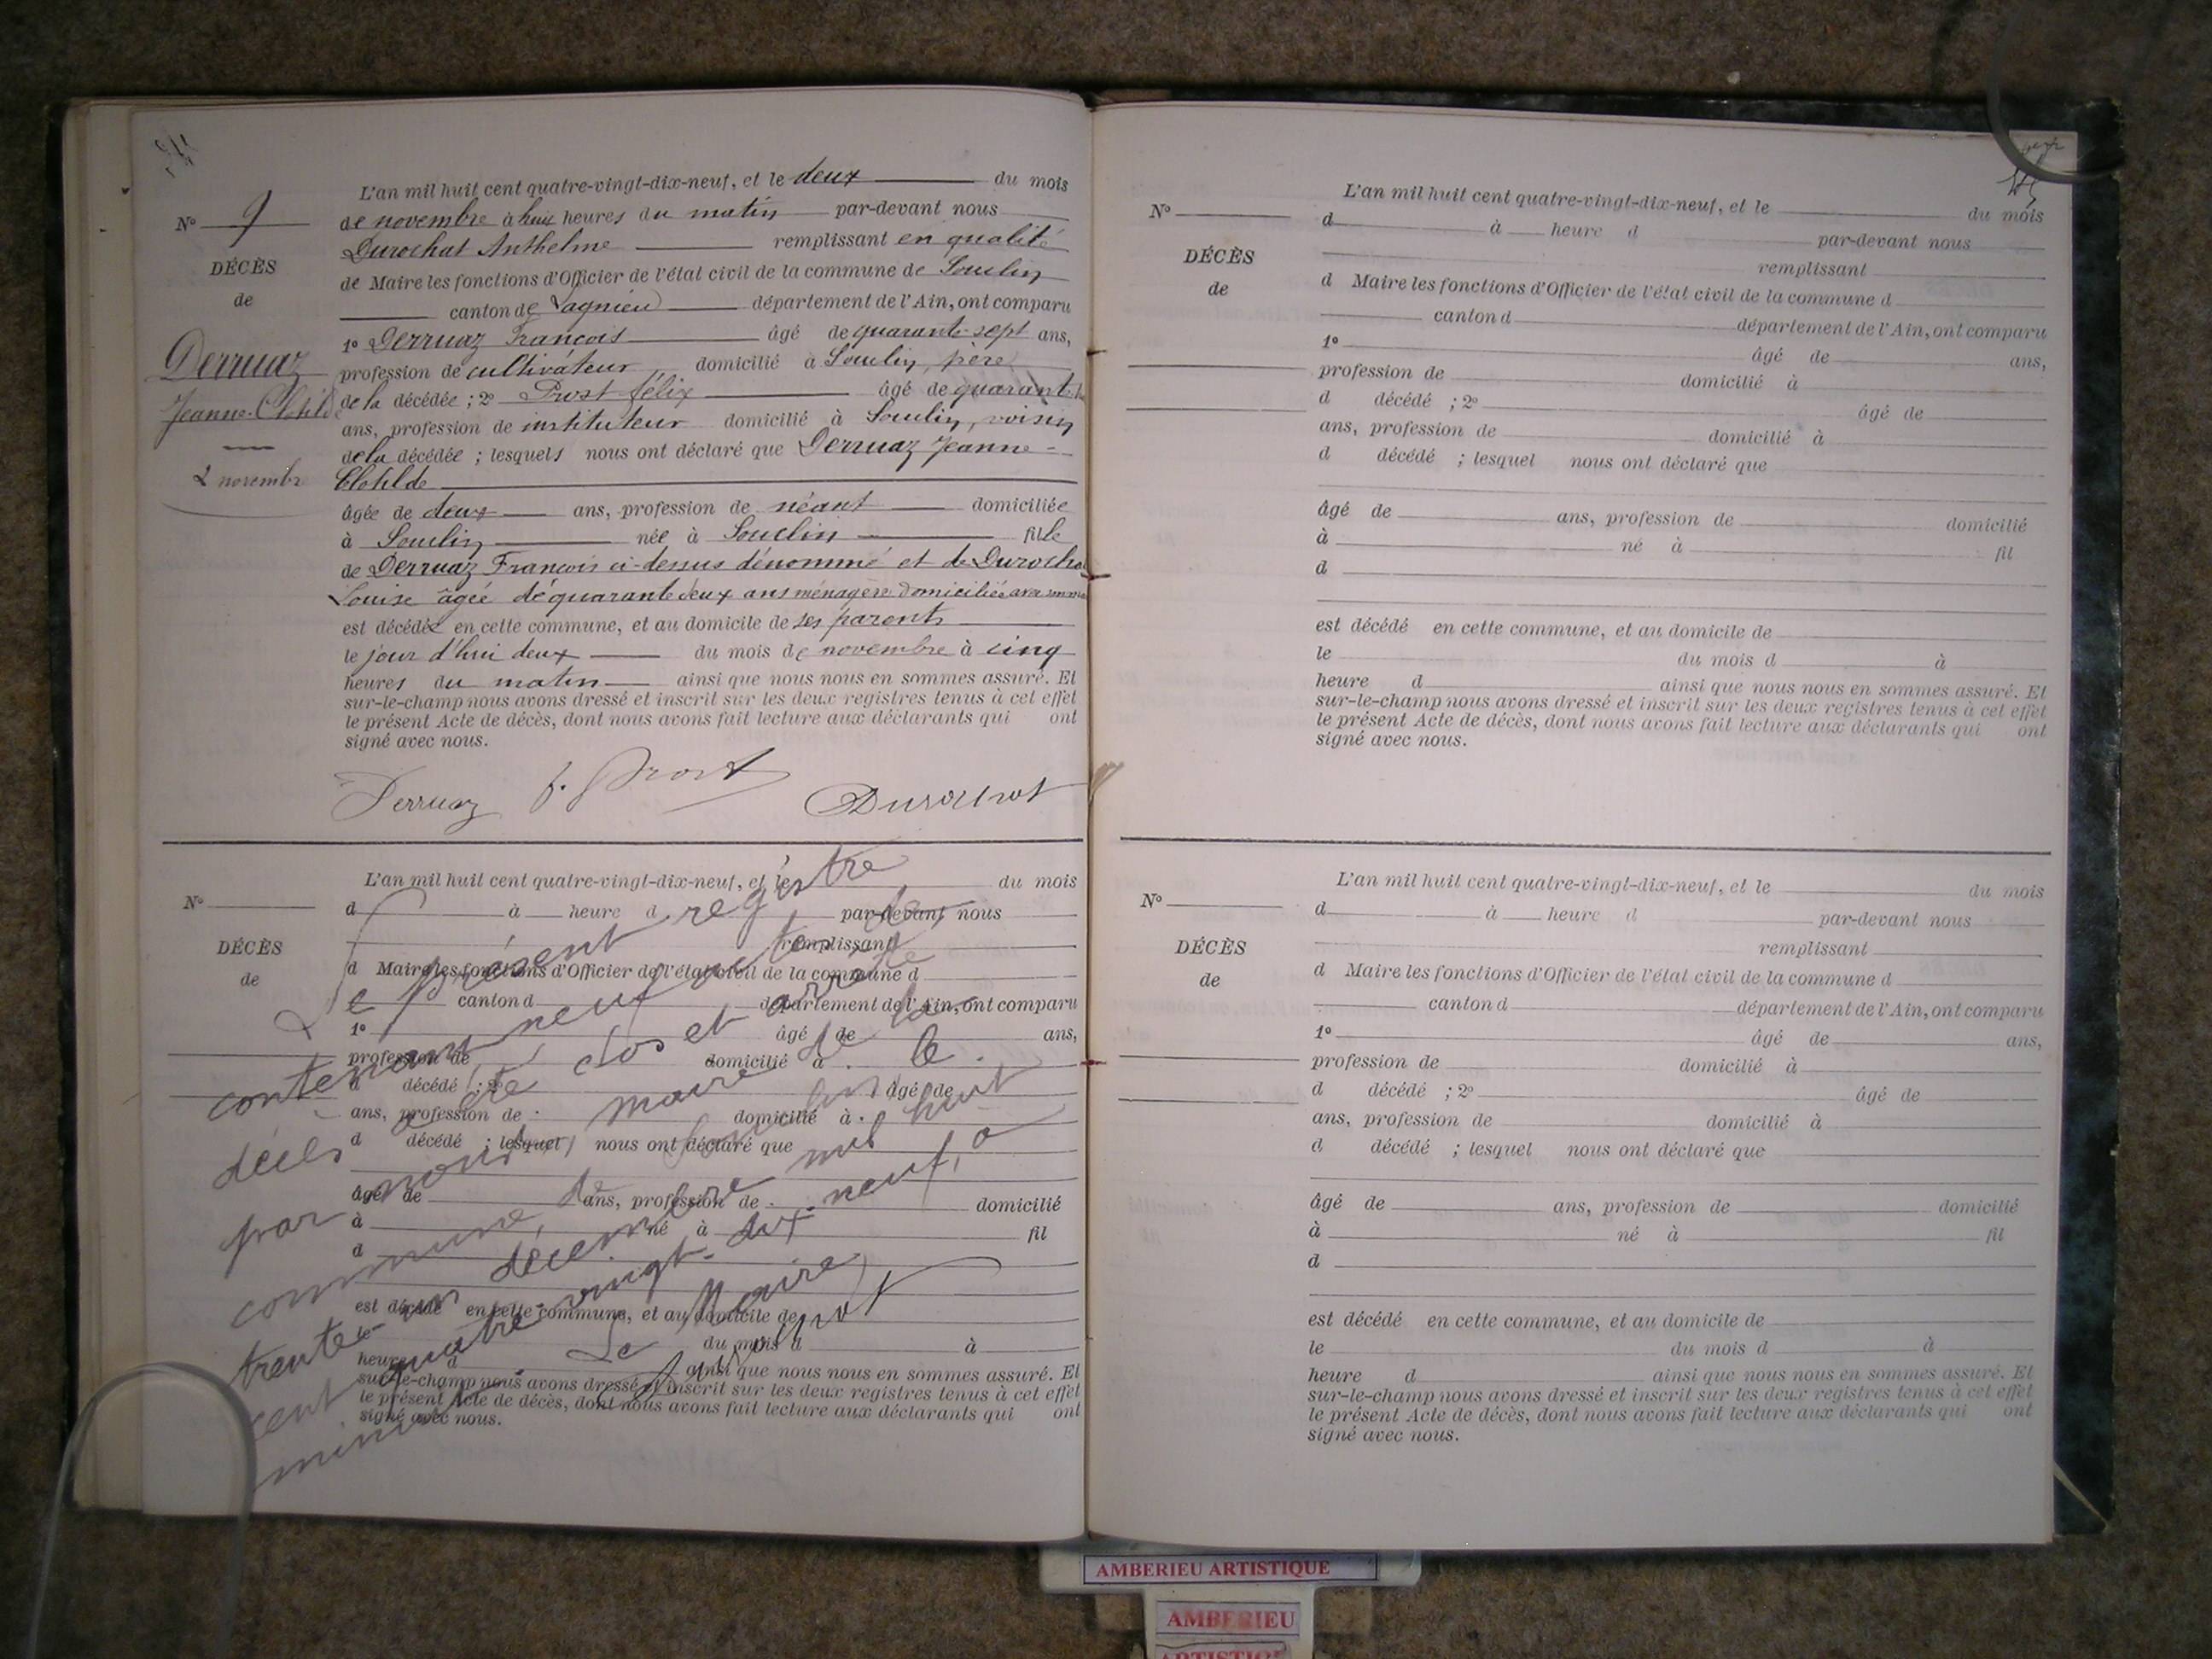 L'an mil huit cent quatre-vingt-dix-neuf, et le deux du mois
N° 9
de novembre à huit heures du matin par-devant nous
Durochat Anthelme remplissant en qualité
DÉCÈS
de Maire les fonctions d'Officier de l'état civil de la commune de Souclin
de
canton de Lagnieu département de l'Ain, ont comparu
1° Derruaz François âgé de quarante-sept ans,
Derruaz
profession de cultivateur, domicilié à Souclin, père
Jeanne-Clotilde
de la décédée ; 2° Prost félix âgé de
ans, profession de instituteur domicilié à Souclin, voisin
de la décédée ; lesquels nous ont déclaré que Derruaz Jeanne-
2 novembre
Clotilde
âgée de deux ans, profession de néant domiciliée
à Souclin née à Souclin fille
de Derruaz François ci-dessus dénommé et de Durochat
Louise âgée de quarante deux ans ménagère domiciliée avec son
est décédée en cette commune, et au domicile de ses parents
le jour d'hui deux du mois de novembre à cinq
heures du matin ainsi que nous nous en sommes assuré. Et
sur-le-champ nous avons dressé et inscrit sur les deux registres tenus à cet effet
le présent Acte de décès, dont nous avons fait lecture aux déclarants qui ont
signé avec nous.
Derruaz f. Prost Durochat
L'an mil huit cent quatre-vingt-dix-neuf, et le du mois
N°
d à heure d par-devant nous
remplissant
DÉCÈS
d Maire les fonctions d'Officier de l'état civil de la commune d
de
canton d département de l'Ain, ont comparu
1° âgé de ans,
profession de domicilié à
d décédé ; 2° âgé de
ans, profession de domicilié à
d décédé ; lesquel nous ont déclaré que
âgé de ans, profession de domicilié
à né à fil
d
est décédé en cette commune, et au domicile de
le du mois d à
heure d ainsi que nous nous en sommes assuré. Et
sur-le-champ nous avons dressé et inscrit sur les deux registres tenus à cet effet
le présent Acte de décès, dont nous avons fait lecture aux déclarants qui ont
signé avec nous.
Le présent registre
contenant neuf actes de
décès a été clos et arrêté
par nous, maire de la
commune de Souclin le
trente-un décembre mil huit
cent quatre-vingt-dix-neuf, à
minuit.
Le Maire
Durochat
L'an mil huit cent quatre-vingt-dix-neuf, et le du mois
N°
d à heure d par-devant nous
remplissant
DÉCÈS
d Maire les fonctions d'Officier de l'état civil de la commune d
de
canton d département de l'Ain, ont comparu
1° âgé de ans,
profession de domicilié à
d décédé ; 2° âgé de
ans, profession de domicilié à
d décédé ; lesquel nous ont déclaré que
âgé de ans, profession de domicilié
à né à fil
d
est décédé en cette commune, et au domicile de
le du mois d à
heure d ainsi que nous nous en sommes assuré. Et
sur-le-champ nous avons dressé et inscrit sur les deux registres tenus à cet effet
le présent Acte de décès, dont nous avons fait lecture aux déclarants qui ont
signé avec nous.
L'an mil huit cent quatre-vingt-dix-neuf, et le du mois
N°
d à heure d par-devant nous
remplissant
DÉCÈS
d Maire les fonctions d'Officier de l'état civil de la commune d
de
canton d département de l'Ain, ont comparu
1° âgé de ans,
profession de domicilié à
d décédé ; 2° âgé de
ans, profession de domicilié à
d décédé ; lesquel nous ont déclaré que
âgé de ans, profession de domicilié
à né à fil
d
est décédé en cette commune, et au domicile de
le du mois d à
heure d ainsi que nous nous en sommes assuré. Et
sur-le-champ nous avons dressé et inscrit sur les deux registres tenus à cet effet
le présent Acte de décès, dont nous avons fait lecture aux déclarants qui ont
signé avec nous.
AMBERIEU ARTISTIQUE
AMBERIEU
ARTISTIQUE